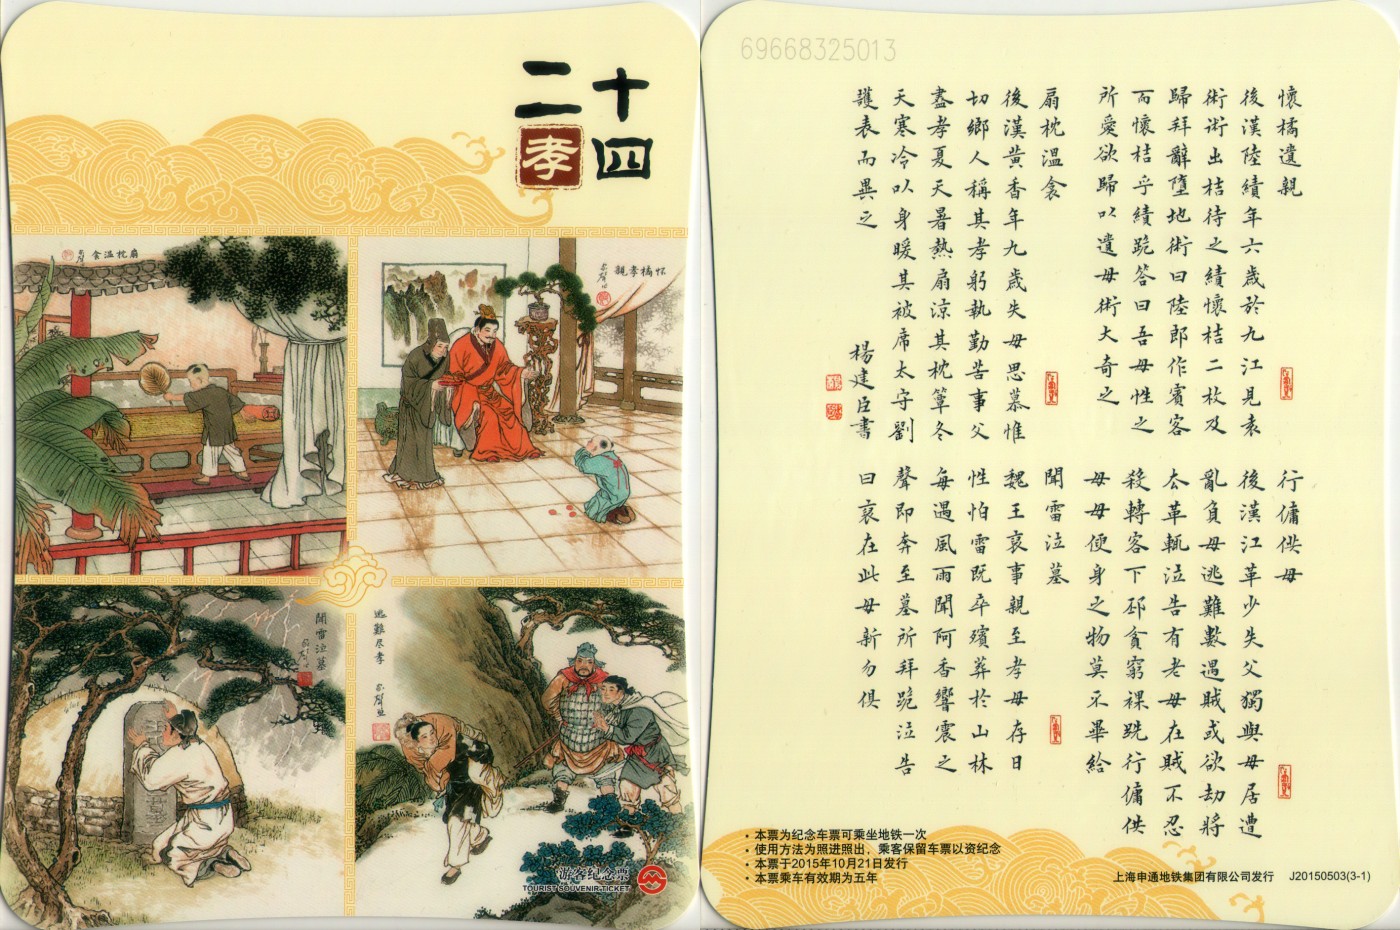 二十四孝
扇枕溫衾
怀橘孝親
聞雷泣墓
逃難尽孝
游客纪念票
TOURIST SOUVENIR TICKET
69668325013
懷橘遺親
後漢陸績年六歲於九江見袁
術術出桔待之績懷桔二枚及
歸拜辭墮地術曰陸郎作賓客
而懷桔乎績跪答曰吾母性之
所愛欲歸以遺母術大奇之
扇枕溫衾
後漢黃香年九歲失母思慕惟
切鄉人稱其孝躬執勤苦事父
盡孝夏天暑熱扇涼其枕簟冬
天寒冷以身暖其被席太守劉
護表而異之
楊建臣書
行傭供母
後漢江革少失父獨與母居遭
亂負母逃難數遇賊或欲劫將
去革輒泣告有老母在賊不忍
殺轉客下邳貧窮裸跣行傭供
母母便身之物莫不畢給
聞雷泣墓
魏王裒事親至孝母存日
性怕雷既卒殯葬於山林
每遇風雨聞阿香響震之
聲即奔至墓所拜跪泣告
曰裒在此母新勿俱
·本票为纪念车票可乘坐地铁一次
·使用方法为照进照出、乘客保留车票以资纪念
·本票于2015年10月21日发行
·本票乘车有效期为五年
上海申通地铁集团有限公司发行 J20150503(3-1)